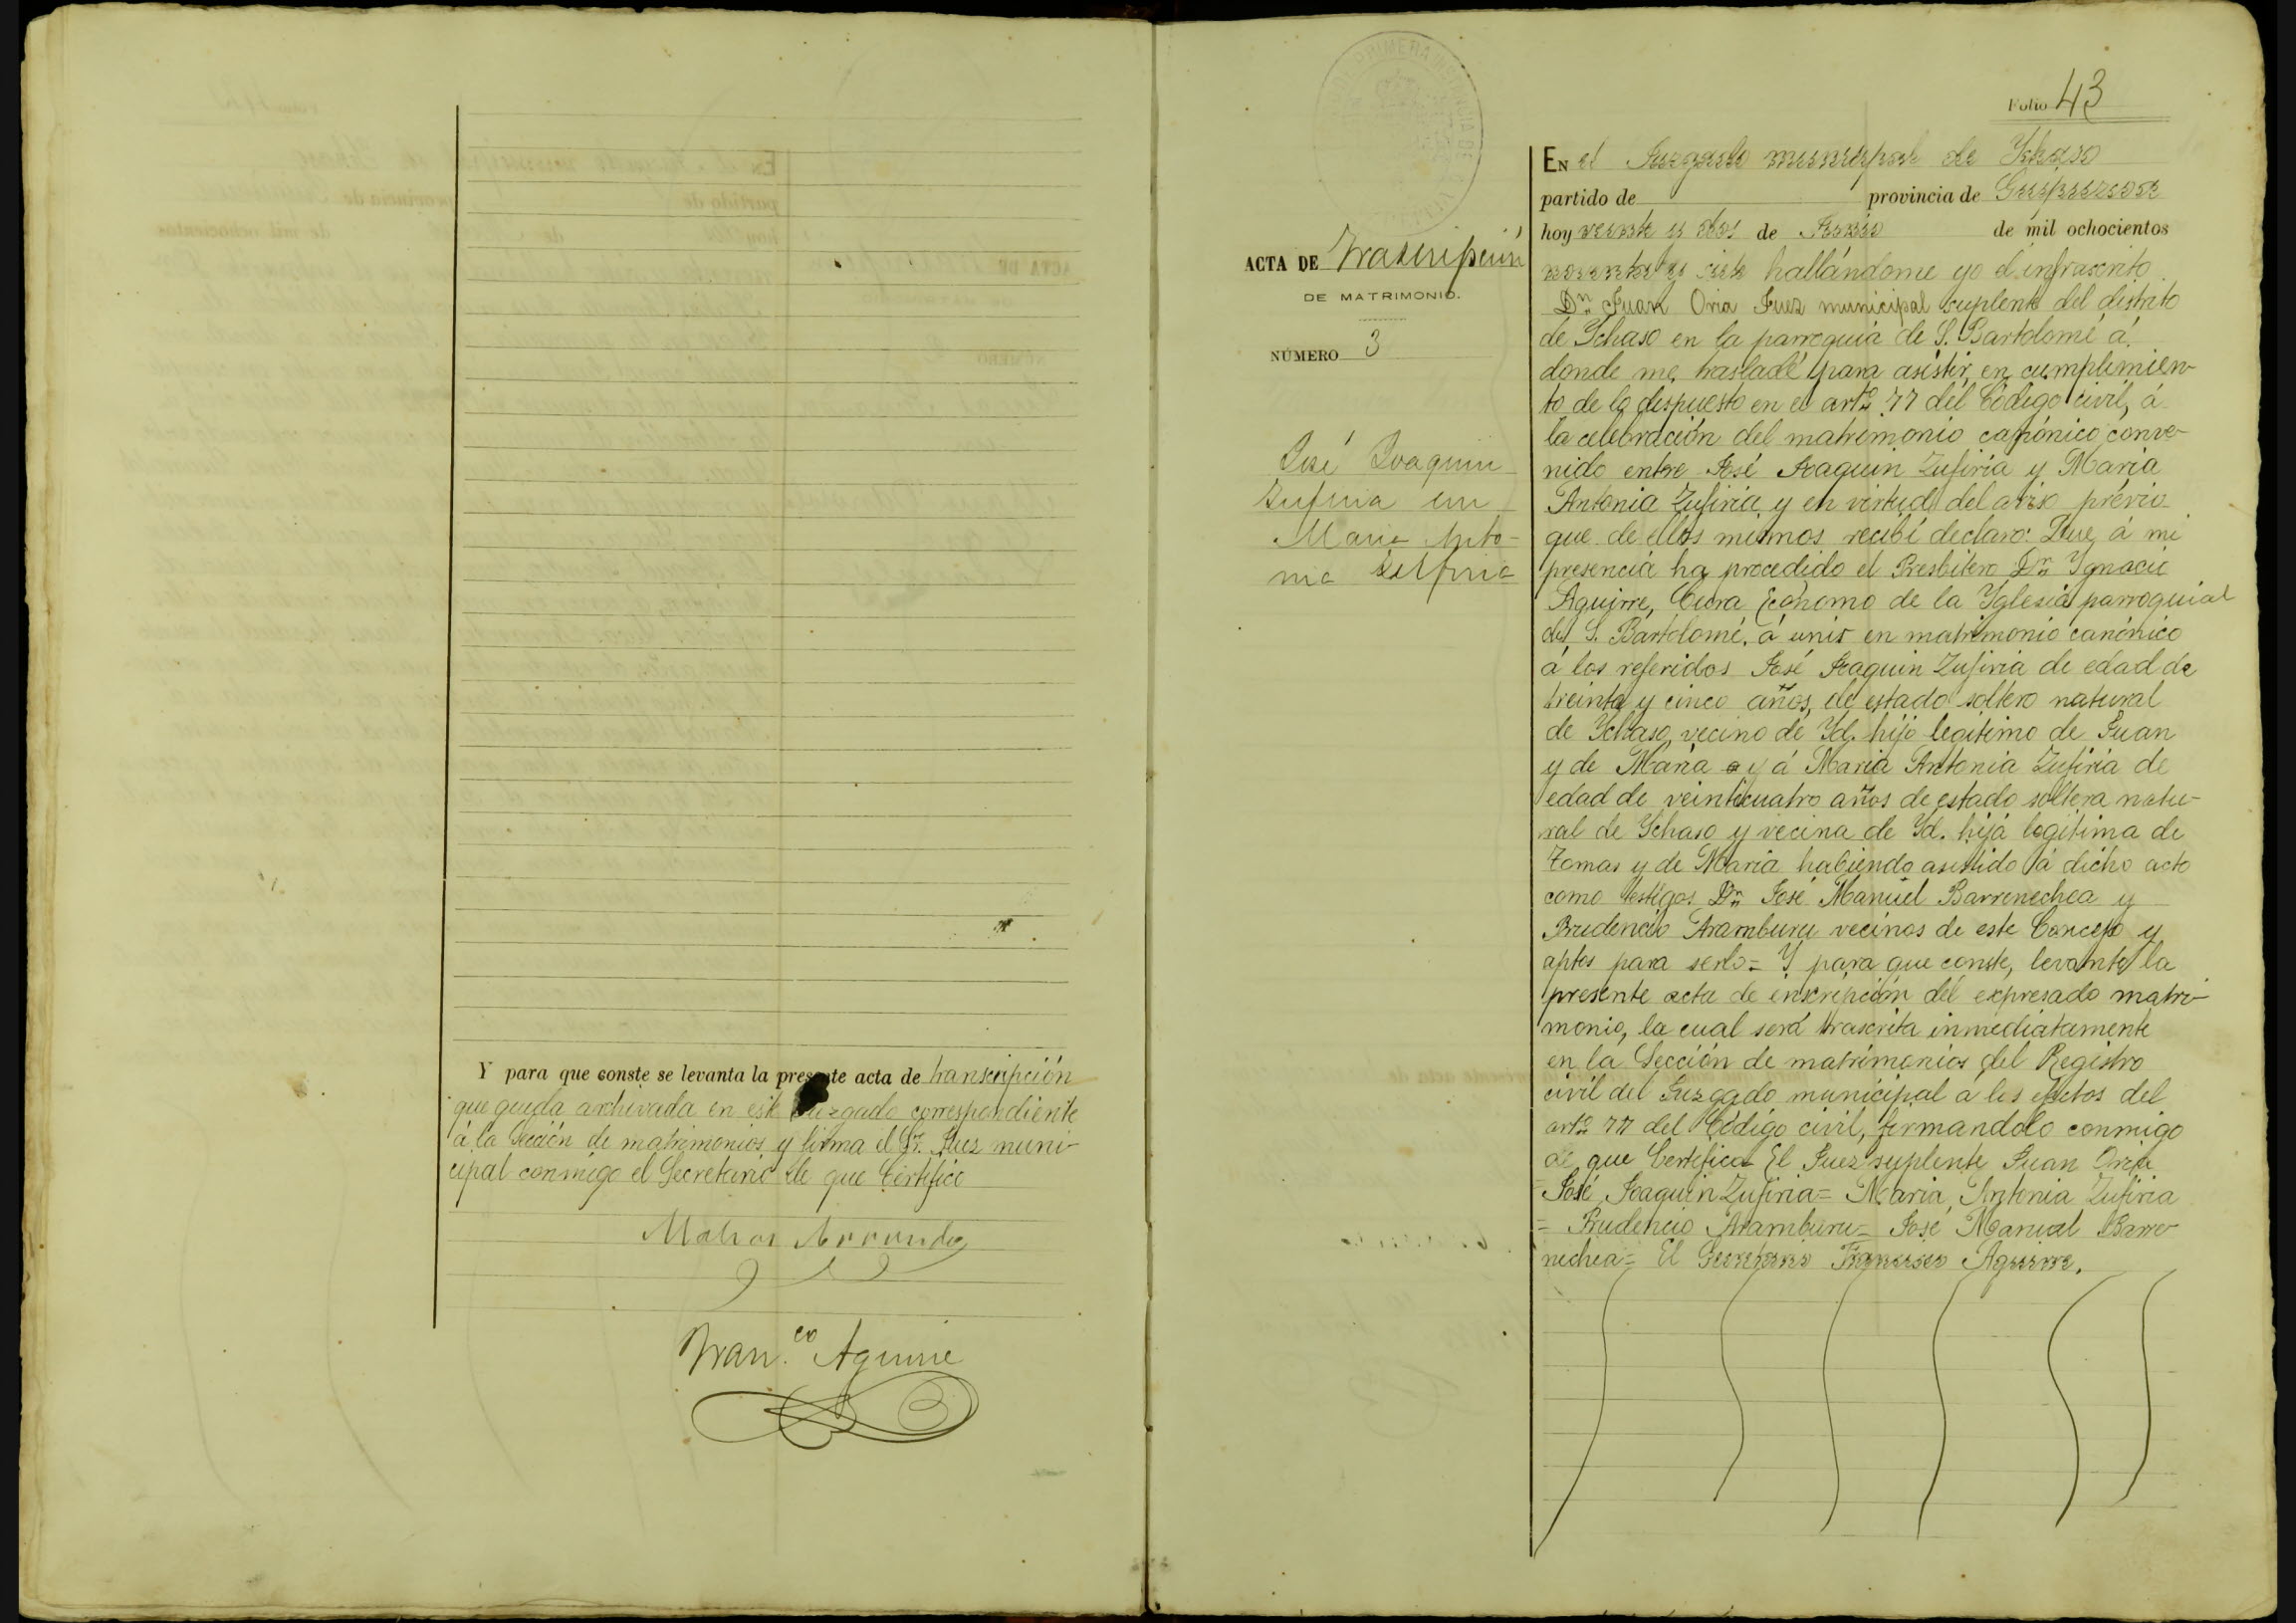 Y para que conste se levanta la presente acta de transcripción
que queda archivada en este Juzgado correspondiente
á la Sección de matrimonios y firma el Sr. Juez muni-
cipal conmigo el Secretario de que Certifico
Fran.co Aguirre
Folio 43
ACTA DE Trascripción
DE MATRIMONIO.
NÚMERO 3
José Joaquin
Zufiria con
Maria Anto-
nia Zufiria
EN el Juzgado municipal de Ychaso
partido de provincia de Guipuzcoa
hoy veinte y dos de Junio de mil ochocientos
noventa y siete hallándome yo el infrascrito
Dn Juan Oria Juez municipal suplente del distrito
de Ychaso en la parroquia de S. Bartolomé á
donde me trasladé para asistir, en cumplimien-
to de lo despuesto en el arto 77 del Código civil, á
la celebración del matrimonio canónico conve-
nido entre José Joaquin Zufiria y Maria
Antonia Zufiria y en virtud del aviso prévio
que de ellos mismos recibí declaro: Que, á mi
presencia ha procedido el Presbitero Dn Ygnacio
Aguirre, Cura Ecónomo de la Yglesia parroquial
de S. Bartolomé, á unir en matrimonio canónico
á los referidos José Joaquin Zufiria de edad de
treinta y cinco años, de estado soltero natural
de Ychaso, vecino de Yd. hijo legitimo de Juan
y de Maria y á Maria Antonia Zufiria de
edad de veinticuatro años de estado soltera natu-
ral de Ychaso y vecina de Yd. hija legitima de
Tomas y de Maria habiendo asistido á dicho acto
como testigos Dn José Manuel Barrenechea y
Prudencio Aramburu vecinos de este Concejo y
aptos para serlo= Y para que conste, levanto la
presente acta de inscripción del expresado matri-
monio, la cual será trascrita inmediatamente
en la Sección de matrimonios del Registro
civil del Juzgado municipal á los efectos del
arto 77 del Código civil, firmandolo conmigo
de que Certifico= El Juez suplente Juan Oria
= José Joaquin Zufiria= Maria Antonia Zufiria
= Prudencio Aramburu= José Manuel Barre-
nechea= El Secretario Francisco Aguirre.